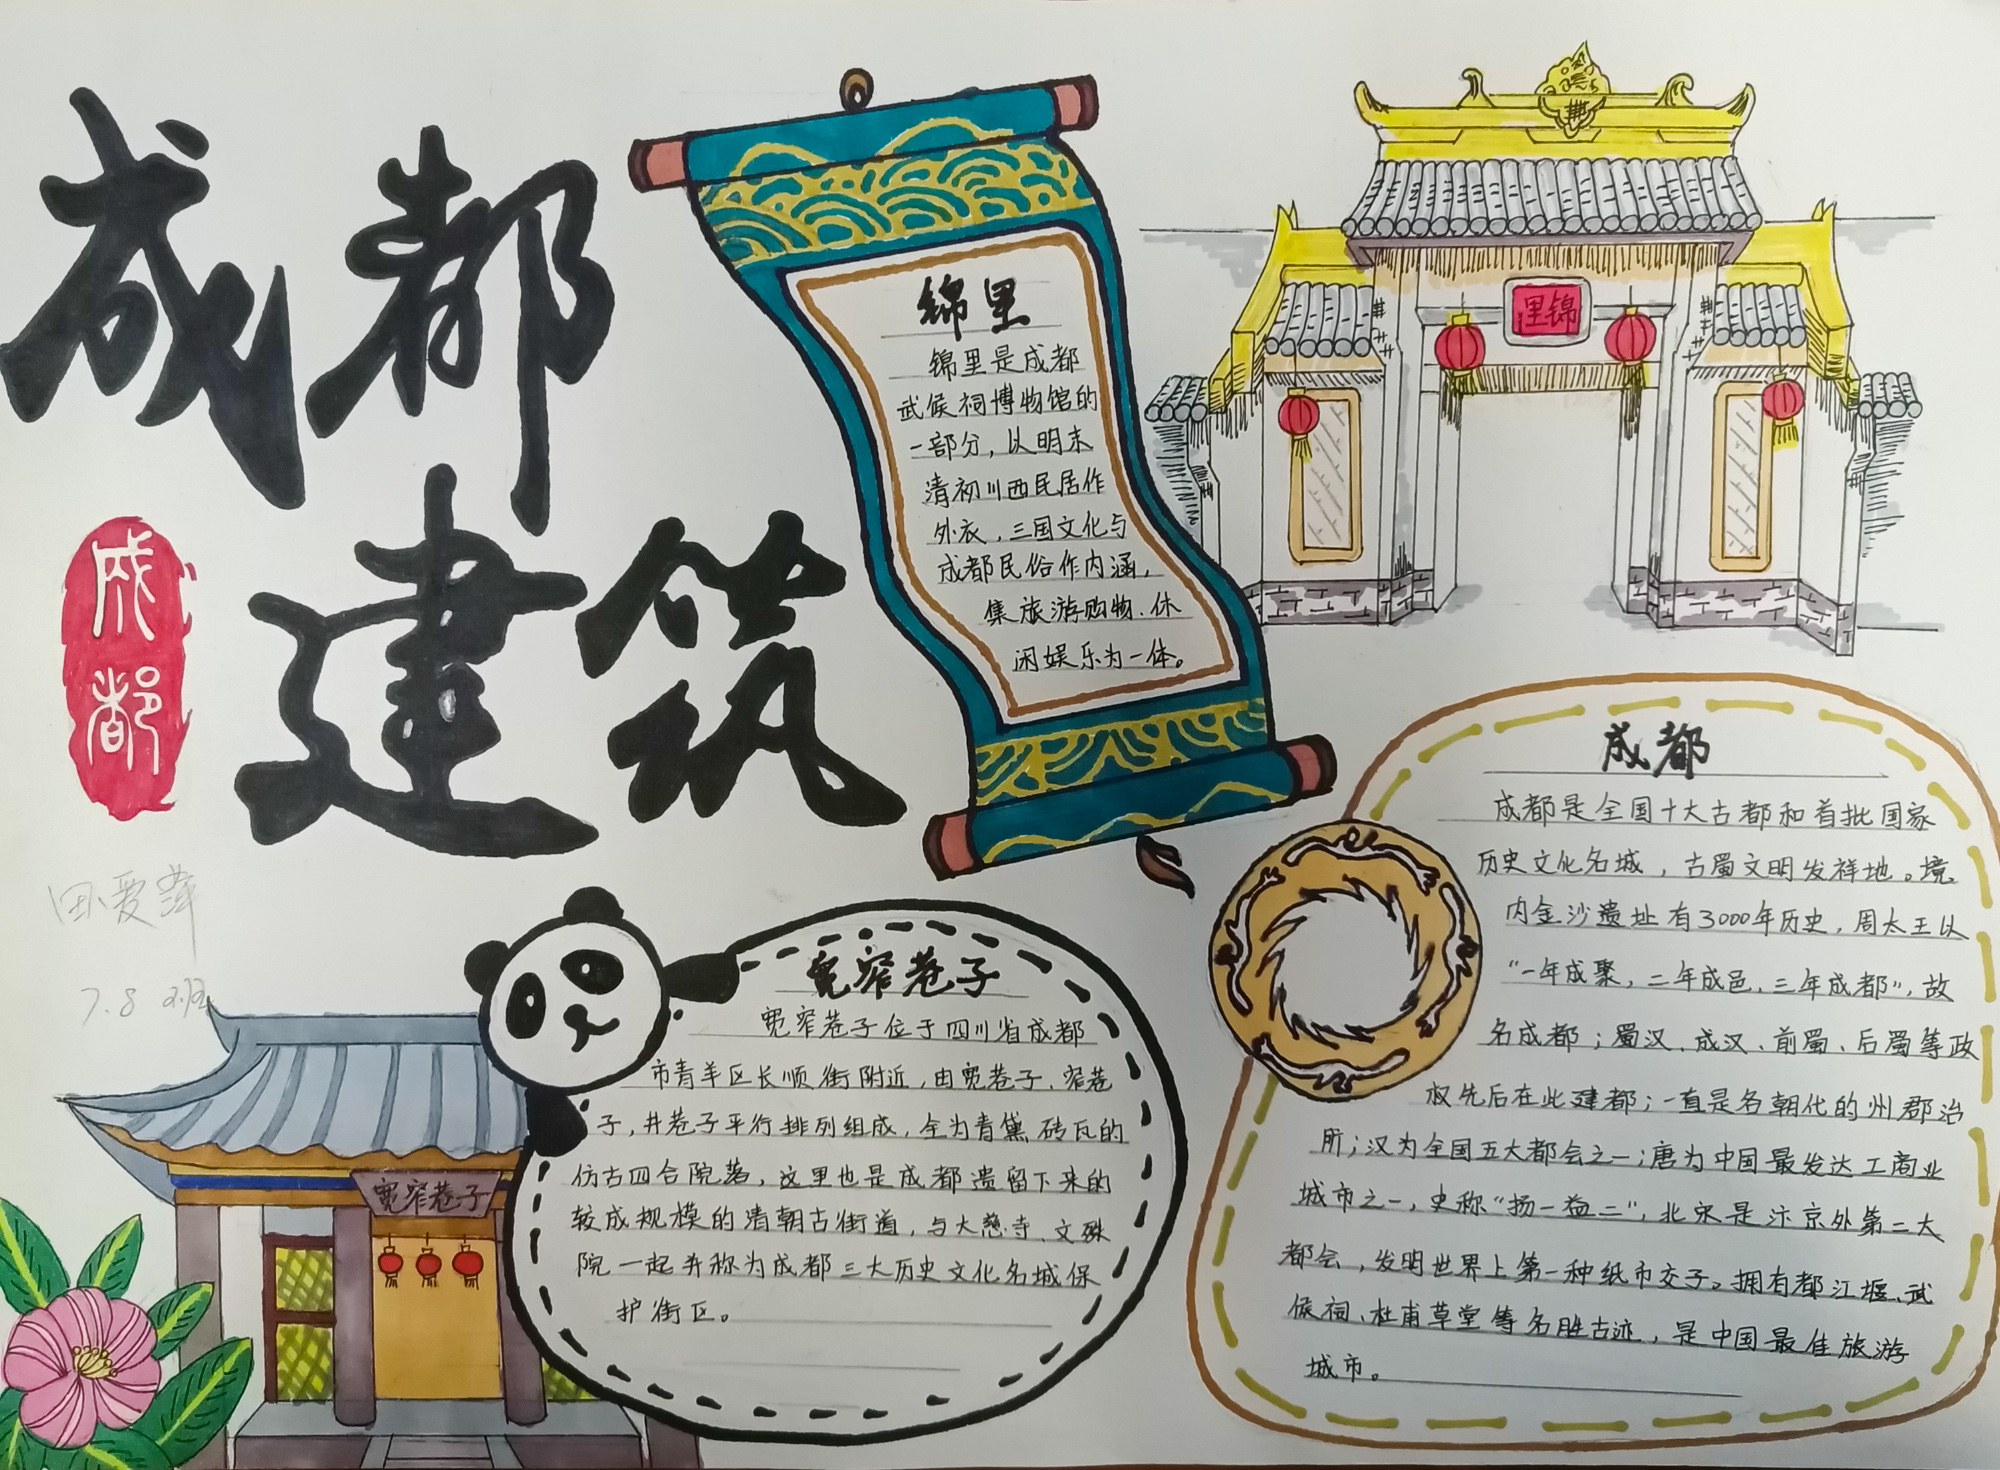 成都
建筑
成都
7.8班
锦里
锦里是成都
武侯祠博物馆的
一部分，以明末
清初川西民居作
外衣，三国文化与
成都民俗作内涵，
集旅游购物、休
闲娱乐为一体。
里锦
宽窄巷子
宽窄巷子位于四川省成都
市青羊区长顺街附近，由宽巷子、窄巷
子，井巷子平行排列组成，全为青黛砖瓦的
仿古四合院落，这里也是成都遗留下来的
较成规模的清朝古街道，与大慈寺、文殊
院一起并称为成都三大历史文化名城保
护街区。
宽窄巷子
成都
成都是全国十大古都和首批国家
历史文化名城，古蜀文明发祥地。境
内金沙遗址有3000年历史，周太王以
“一年成聚，二年成邑，三年成都”，故
名成都；蜀汉、成汉、前蜀、后蜀等政
权先后在此建都；一直是各朝代的州郡治
所；汉为全国五大都会之一；唐为中国最发达工商业
城市之一，史称“扬一益二”，北宋是汴京外第二大
都会，发明世界上第一种纸币交子。拥有都江堰、武
侯祠、杜甫草堂等名胜古迹，是中国最佳旅游
城市。